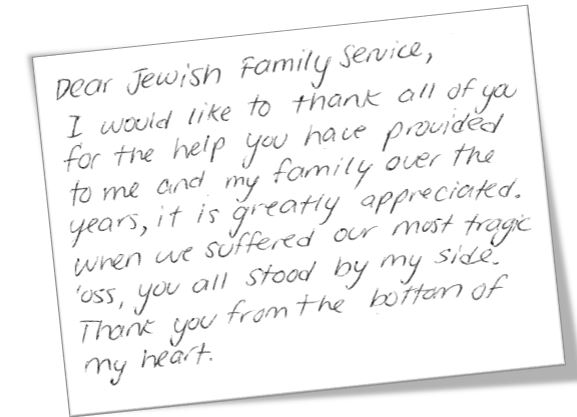 Dear Jewish Family Service,
I would like to thank all of you
for the help you have provided
to me and my family over the
years, it is greatly appreciated.
when we suffered our most tragic
'oss, you all stood by my side.
Thank you from the bottom of
my heart.